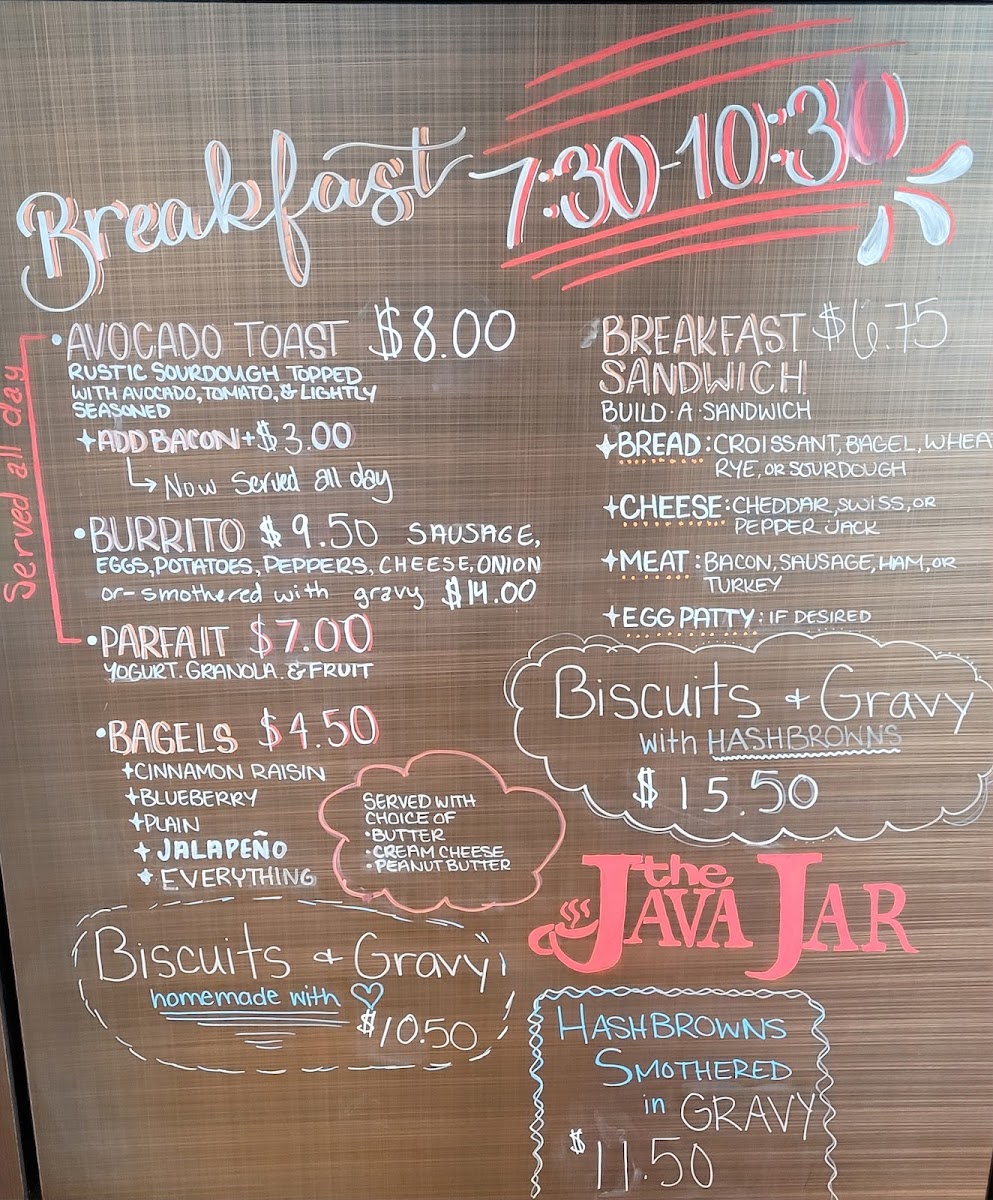 Breakfast 7:30-10:30
Served all day
• AVOCADO TOAST $8.00
RUSTIC SOURDOUGH TOPPED
WITH AVOCADO, TOMATO, & LIGHTLY
SEASONED
ADD BACON + $3.00
Now Served all day
• BURRITO $9.50 SAUSAGE,
EGGS, POTATOES, PEPPERS, CHEESE, ONION
or - smothered with gravy $14.00
• PARFAIT $7.00
YOGURT. GRANOLA. & FRUIT
• BAGELS $4.50
CINNAMON RAISIN
BLUEBERRY
PLAIN
JALAPEÑO
EVERYTHING
SERVED WITH
CHOICE OF
• BUTTER
• CREAM CHEESE
• PEANUT BUTTER
Biscuits & Gravy
homemade with ♡
$10.50
BREAKFAST $6.75
SANDWICH
BUILD · A · SANDWICH
BREAD: CROISSANT, BAGEL, WHEA
RYE, OR SOURDOUGH
CHEESE: CHEDDAR, SWISS, OR
PEPPER JACK
MEAT: BACON, SAUSAGE, HAM, OR
TURKEY
EGG PATTY: IF DESIRED
Biscuits & Gravy
with HASHBROWNS
$15.50
the
JAVA JAR
HASHBROWNS
SMOTHERED
in GRAVY
$11.50